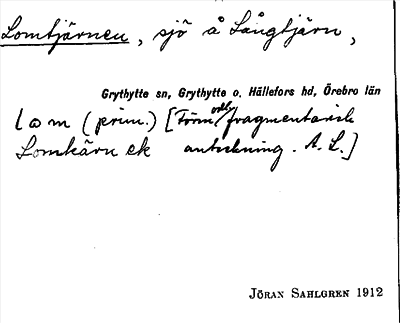 Lomtjärnen, sjö å Långtjärn,
Grythytte sn, Grythytte o. Hällefors hd, Örebro län
(prim.) [Form o fragmentarisk
Lomkärn ek anteckning. A. L.]
JÖRAN SAHLGREN 1912